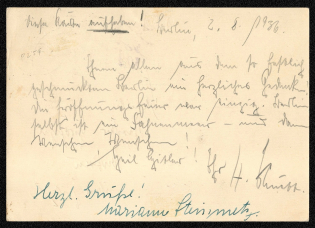 diese Karte aufheben! Berlin, 2. 8. 1936.
Ihnen allen aus dem so festlich
geschmückten Berlin ein herzliches Gedenken
die Eröffnungsfeier war einzig. Berlin
selbst ist ein Fahnenmeer - und dann
Menschen Menschen!
Heil Hitler! Ihr H.
Herzl. Grüße!
Marianne Steinmetz.